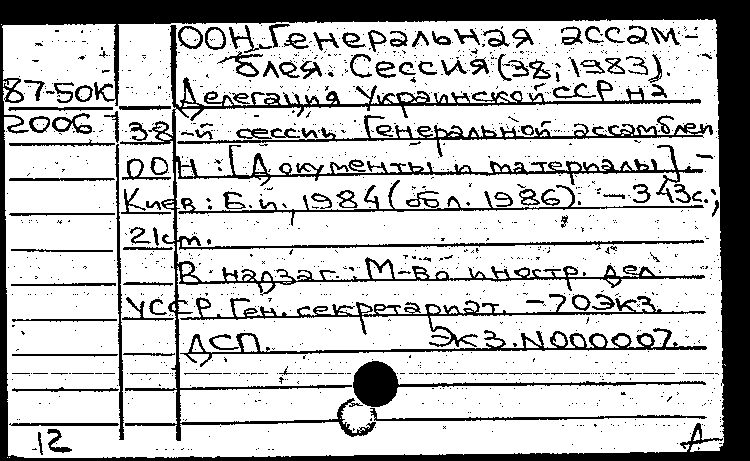 ООН. Генеральная ассам-
блея. Сессия (38; 1983).
87-50К Делегация Украинской ССР на
2006 38-й сессии Генеральной ассамблеи
ООН: [Документы и материалы]. -
Киев: Б.и., 1984 (обл. 1986). - 343с.;
21см.
В надзаг.: М-во иностр. дел
УССР. Ген. секретариат. - 70экз.
ДСП. Экз. N000007.
12 А